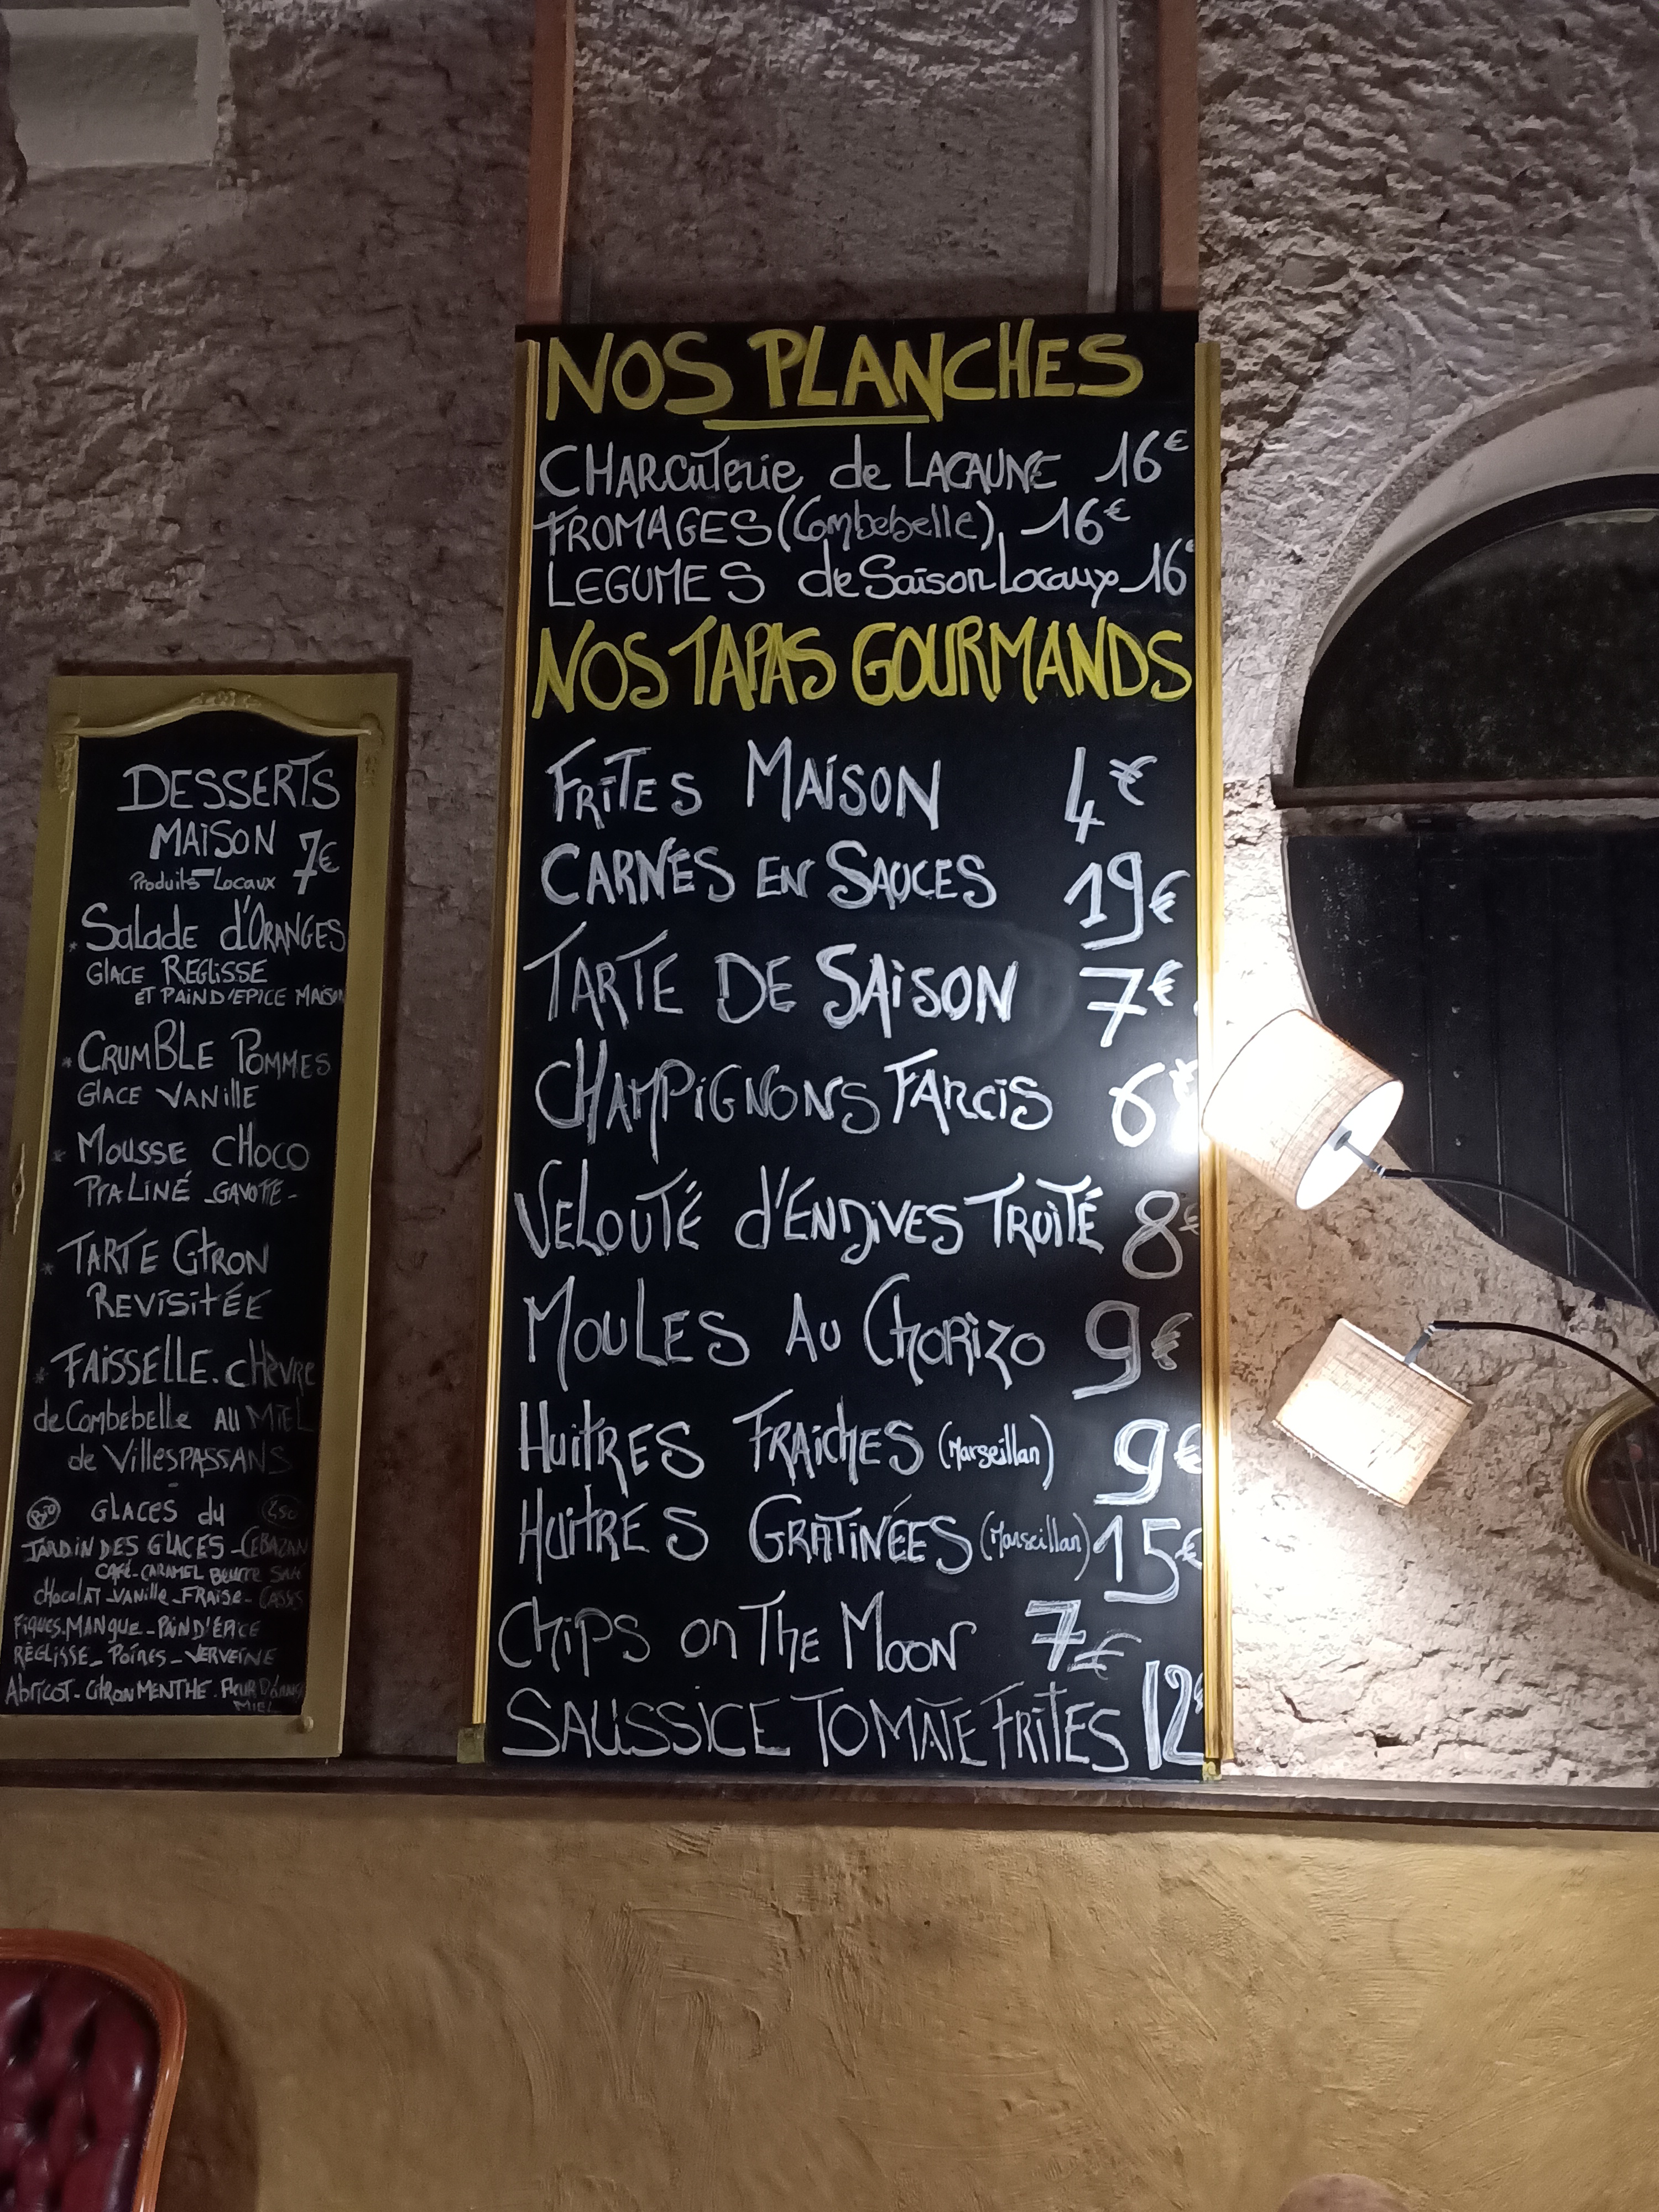 NOS PLANCHES
CHARCUTERIE de LACAUNE 16€
FROMAGES (Combebelle) 16€
LEGUMES de Saison Locaux 16€
NOS TAPAS GOURMANDS
FRITES MAISON 4€
CARNES EN SAUCES 19€
TARTE DE SAISON 7€
CHAMPIGNONS FARCIS 6€
VELOUTÉ d'ENDIVES TRUITÉ 8€
MOULES AU CHORIZO 9€
HUITRES FRAICHES (Marseillan) 9€
HUITRES GRATINÉES (Marseillan) 15€
CHIPS on THE MOON 7€
SAUSSICE TOMATE FRITES 12€
DESSERTS
MAISON 7€
Produits Locaux
* SALADE d'ORANGES
GLACE REGLISSE
ET PAIN D'EPICE MAISON
* CRUMBLE POMMES
GLACE VANILLE
* MOUSSE CHOCO
PRALINÉ - GAVOTTE -
* TARTE CITRON
REVISITÉE
* FAISSELLE. CHÈVRE
de Combebelle AU MIEL
de VILLESPASSANS
Bio GLACES du 2,50
JARDIN DES GLACES - CEBAZAN
CAFÉ - CARAMEL BEURRE SALÉ
CHOCOLAT - VANILLE - FRAISE - CASSIS
FIGUES. MANGUE - PAIN D'ÉPICE
RÉGLISSE - POIRES - VERVEINE
ABRICOT - CITRON MENTHE. FLEUR D'ORANGE
MIEL